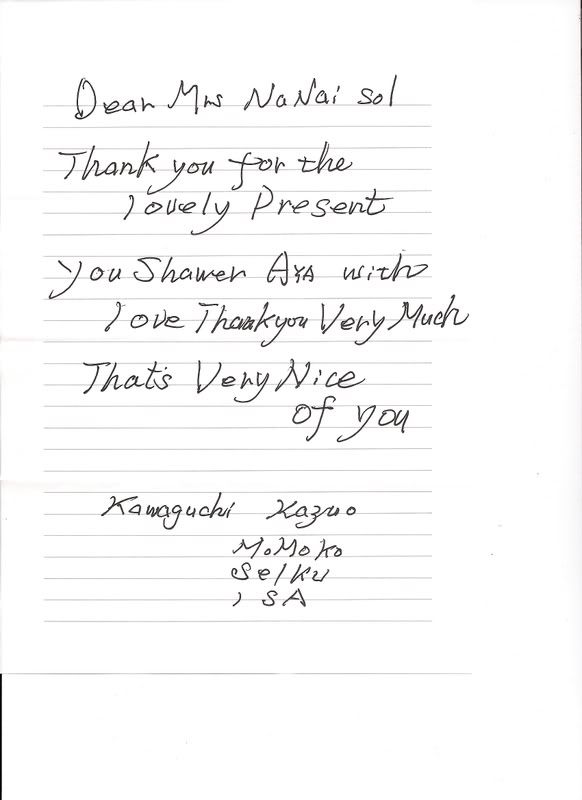 Dear Mrs NaNai sol
Thank you for the
lovely Present
You Shawer AYA with
love Thankyou Very Much
That's Very Nice
of you
Kawaguchi Kazuo
MoMoko
Seiku
ISA